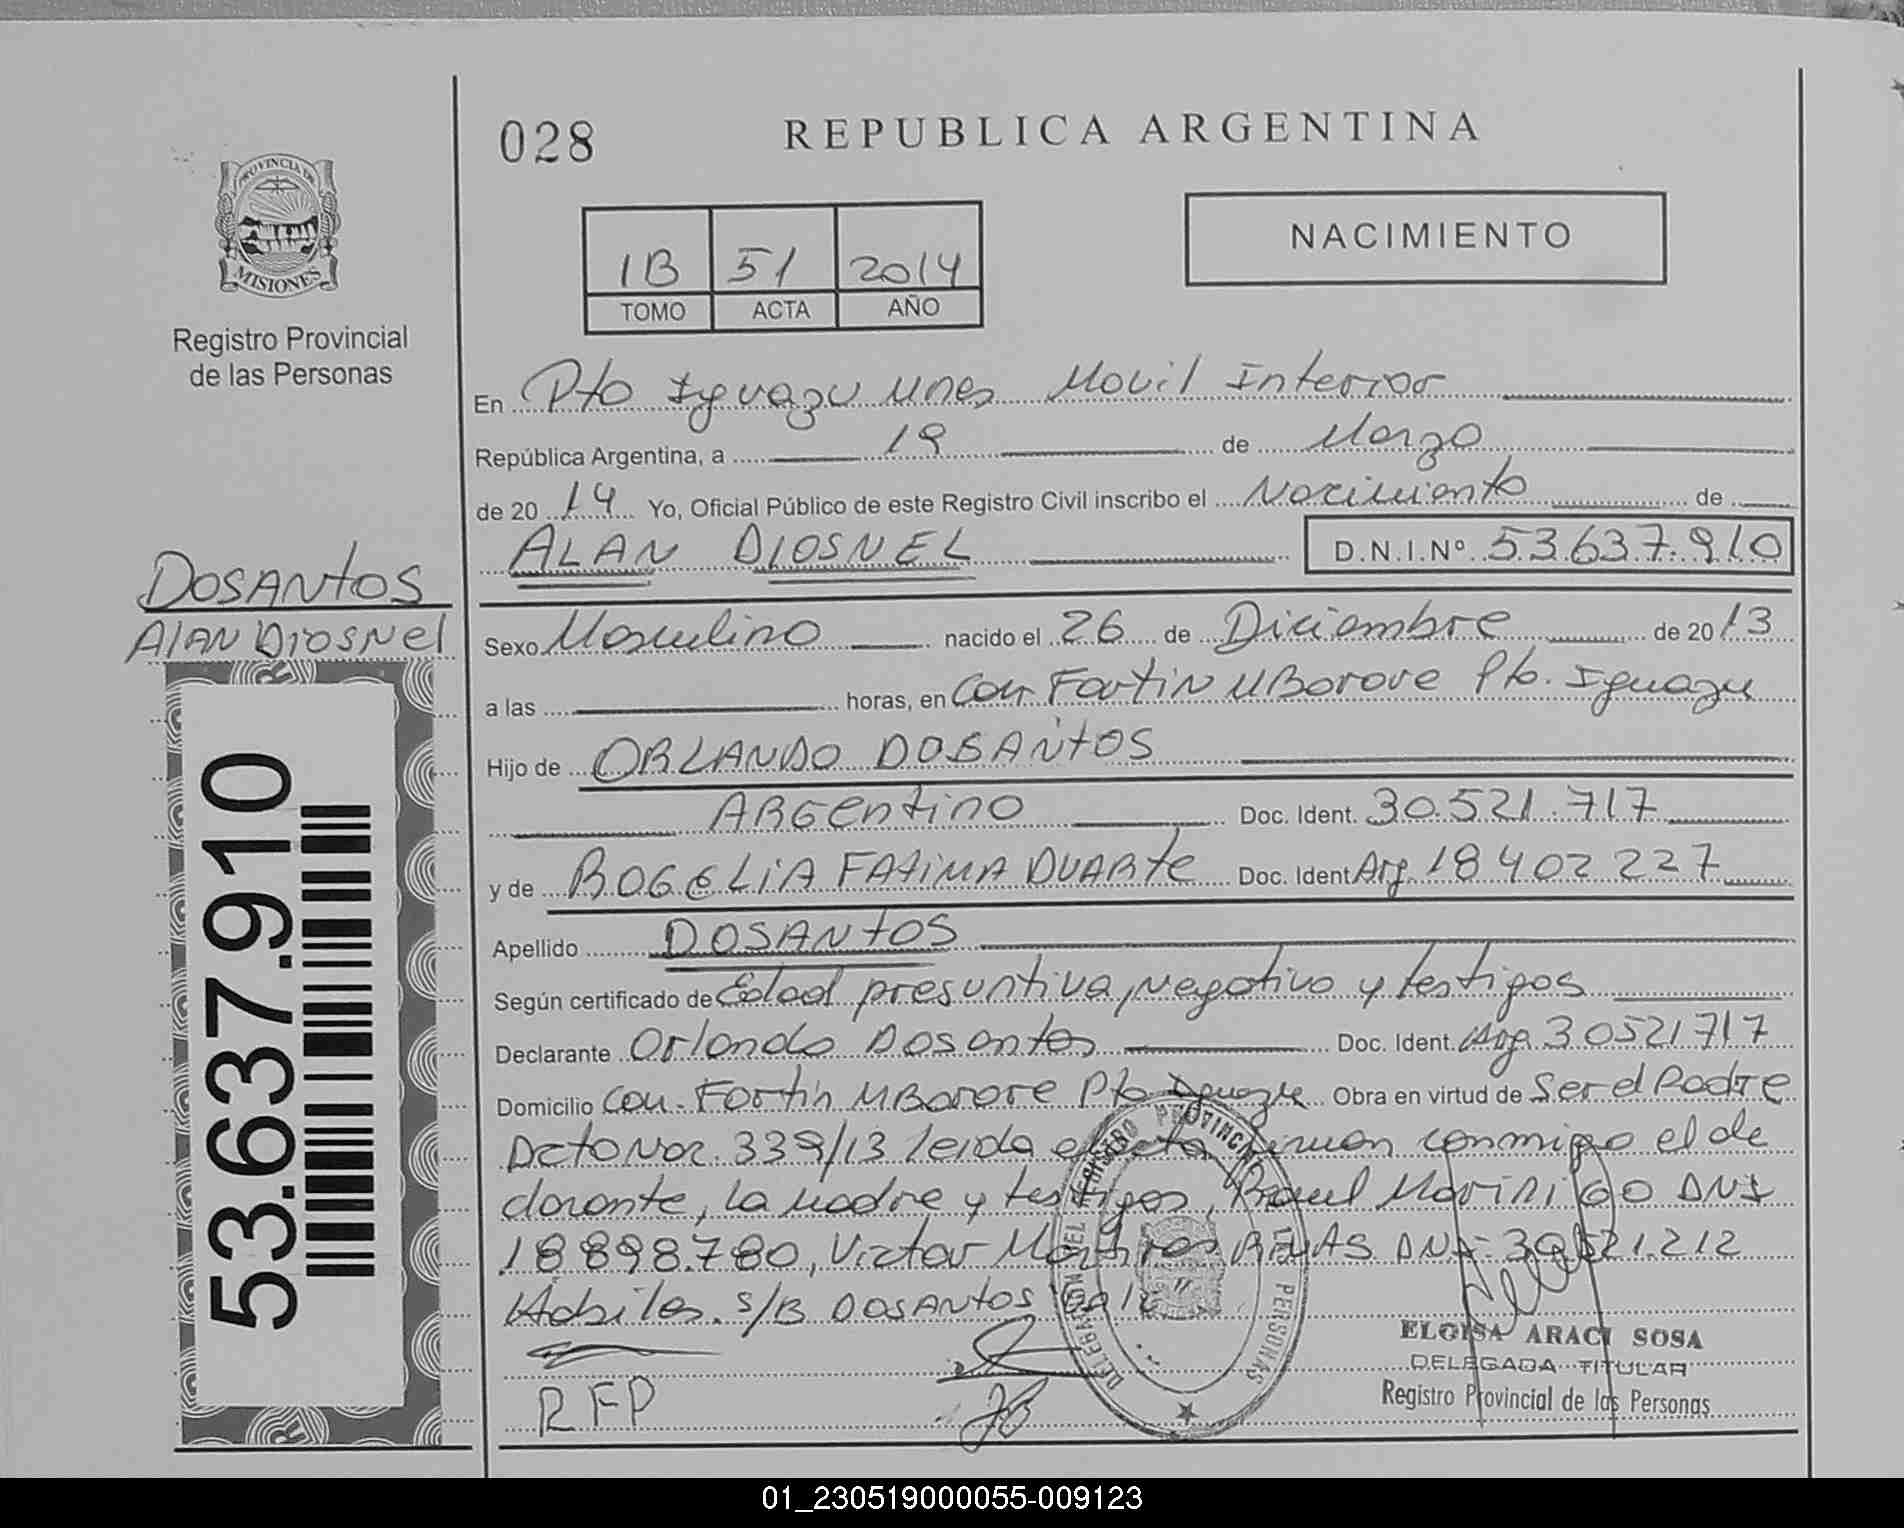 028
REPUBLICA ARGENTINA
PROVINCIA DE
MISIONES
Registro Provincial
de las Personas
1B 51 2014
TOMO ACTA AÑO
NACIMIENTO
En Pto Iguazu Mnes Movil Interior
República Argentina, a 19 de Marzo
de 2014 Yo, Oficial Público de este Registro Civil inscribo el Nacimiento de
ALAN DIOSNEL D.N.I.Nº 53.637.910
DOSANtOS
AlAN DiOSNel
53.637.910
Sexo Masculino nacido el 26 de Diciembre de 2013
a las horas, en Com Fortin MBorore Pto. Iguazu
Hijo de ORLANDO DOSANtOS
ARGentino Doc. Ident. 30.521.717
y de ROGELiA FAtiMA DUARte Doc. Ident Arg. 18 402 227
Apellido DOSANtOS
Según certificado de Edad presuntiva, Negativo y testigos
Declarante Orlando Dosantos Doc. Ident. Arg. 30521717
Domicilio Com. Fortin MBorore Pto Iguazu Obra en virtud de Ser el Padre
Dcto Nac. 339/13 leida el acta firman conmigo el de
clarante, la madre y testigos, Raquel MoriniGO DNI
18 898.780, Victor DNI 30521212
Habiles. S/B DOSANTOS
RFP
REGISTRO PROVINCIAL
DE PERSONAS
ELOISA ARACI SOSA
DELEGADA TITULAR
Registro Provincial de las Personas
01_230519000055-009123